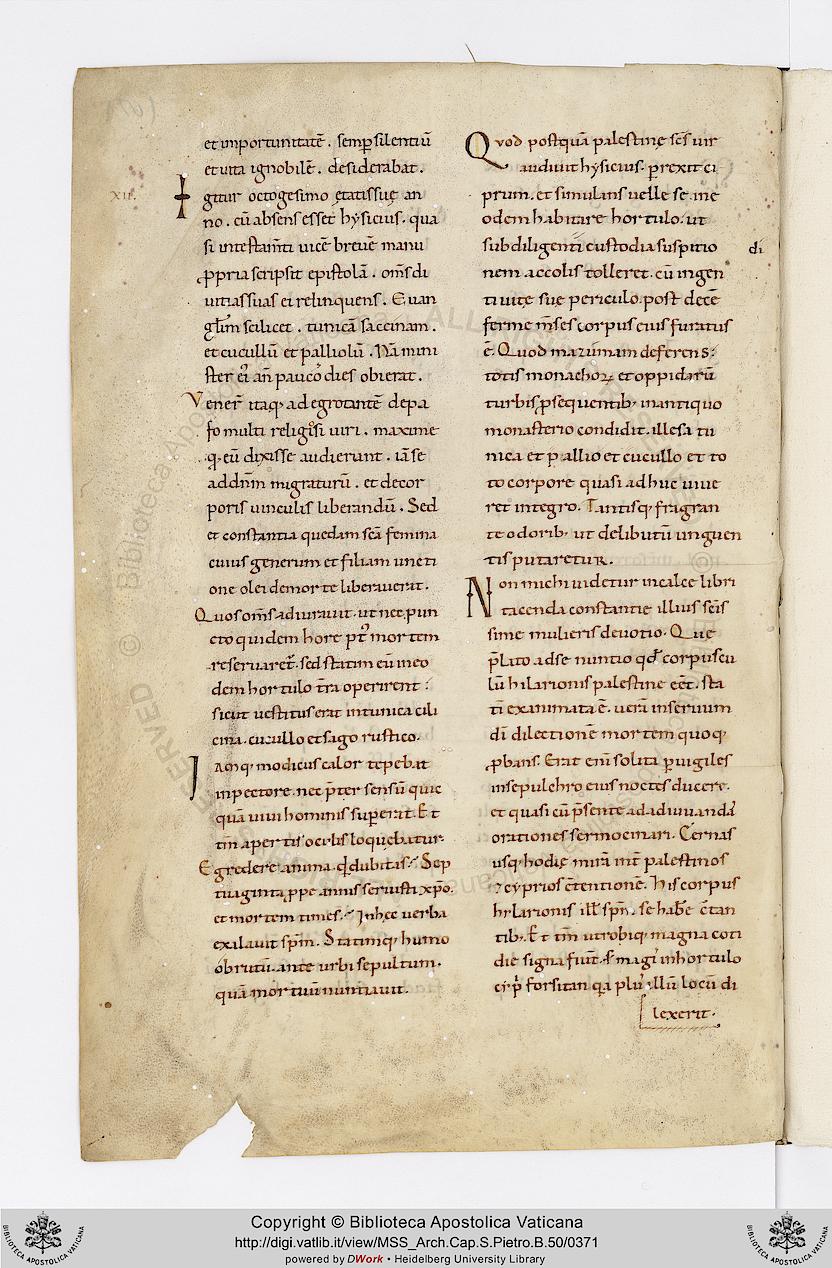 et importunitatē . semp silentiū
et uita ignobilē . desiderabat .
XII.
Igitur octogesimo ętatis suę an
no . cū absens esset hysicius . qua
si intestam̄ti uicē breuē manu
ꝓpria scripsit epistolā . om̄s di
uitias suas ei relinquens . Euan
gl̄m scilicet . tunicā saccinam .
et cucullū et palliolū . Nā mini
ster ei' an̄ paucos dies obierat .
Vener̄ itaq; ad egrotantē de pa
fo multi religiosi uiri . maxime
q; eū dixisse audierunt . iā se
ad dn̄m migraturū . et de cor
poris uinculis liberandū . Sed
et constantia quedam sc̄a femina
cuius generum et filiam uncti
one olei de morte liberauerat .
Quos om̄s adiurauit . ut nec pun
cto quidem hore pt' mortem
reseruaret̄ . sed statim eū in eo
dem hortulo t̄ra operirent :
sicut uestitus erat in tunica cili
cina . cucullo et sago rustico .
Iamq; modicus calor tepebat
in pectore . nec p̄ter sensū quic
quā uiui hominis superat . Et
tm̄ apertis oculis loquebatur .
Egredere anima . qd dubitas ? Sep
tuaginta ꝓpe annis seruisti xp̄o .
et mortem times ? In hec uerba
exalauit sp̄m . Statimq; humo
obrutū . ante urbi sepultum .
quā mortuū nuntiauit .
Quod postquā palestinę sc̄s uir
audiuit hysicius . perrexit ci
prum . et simulans uelle se in e
odem habitare hortulo . ut
sub diligenti custodia suspitio
di
nem accolis tolleret . cū ingen
ti uitę suę periculo . post decē
ferme m̄ses corpus eius furatus
ē . Quod maiumam deferens :
totis monachoꝝ et oppidorū
turbis ꝓsequentib; in antiquo
monasterio condidit . illesa tu
nica et pallio et cucullo et to
to corpore quasi adhuc uiue
ret integro . Tantisq; frigran
te odorib; ut delibutū unguen
tis putaretur .
Non michi uidetur in calce libri
tacenda constantie illius sc̄is
sime mulieris deuotio . Que
p̄lato ad se nuntio qd corpuscu
lū hilarionis palestine eēt . sta
tī exanimata ē . uerā in seruum
dī dilectionē morte quoq;
ꝓbans . Erat enī solita puigiles
in sepulchro eius noctes ducere .
et quasi cū p̄sente ad adiuuandā
orationes sermocinari . Cernas
usq; hodię mirā int̄ palestinos
⁊ cyprios c̄tentionē . his corpus
hylarionis ill' sp̄m . se habe c̄tan
tib; Et tm̄ utrobiq; magna coti
die signa fiunt . s; magi' in hortulo
cyp̄ forsitan qa plus illū locū di
lexerit .
Copyright © Biblioteca Apostolica Vaticana
http://digi.vatlib.it/view/MSS_Arch.Cap.S.Pietro.B.50/0371
powered by DWork • Heidelberg University Library